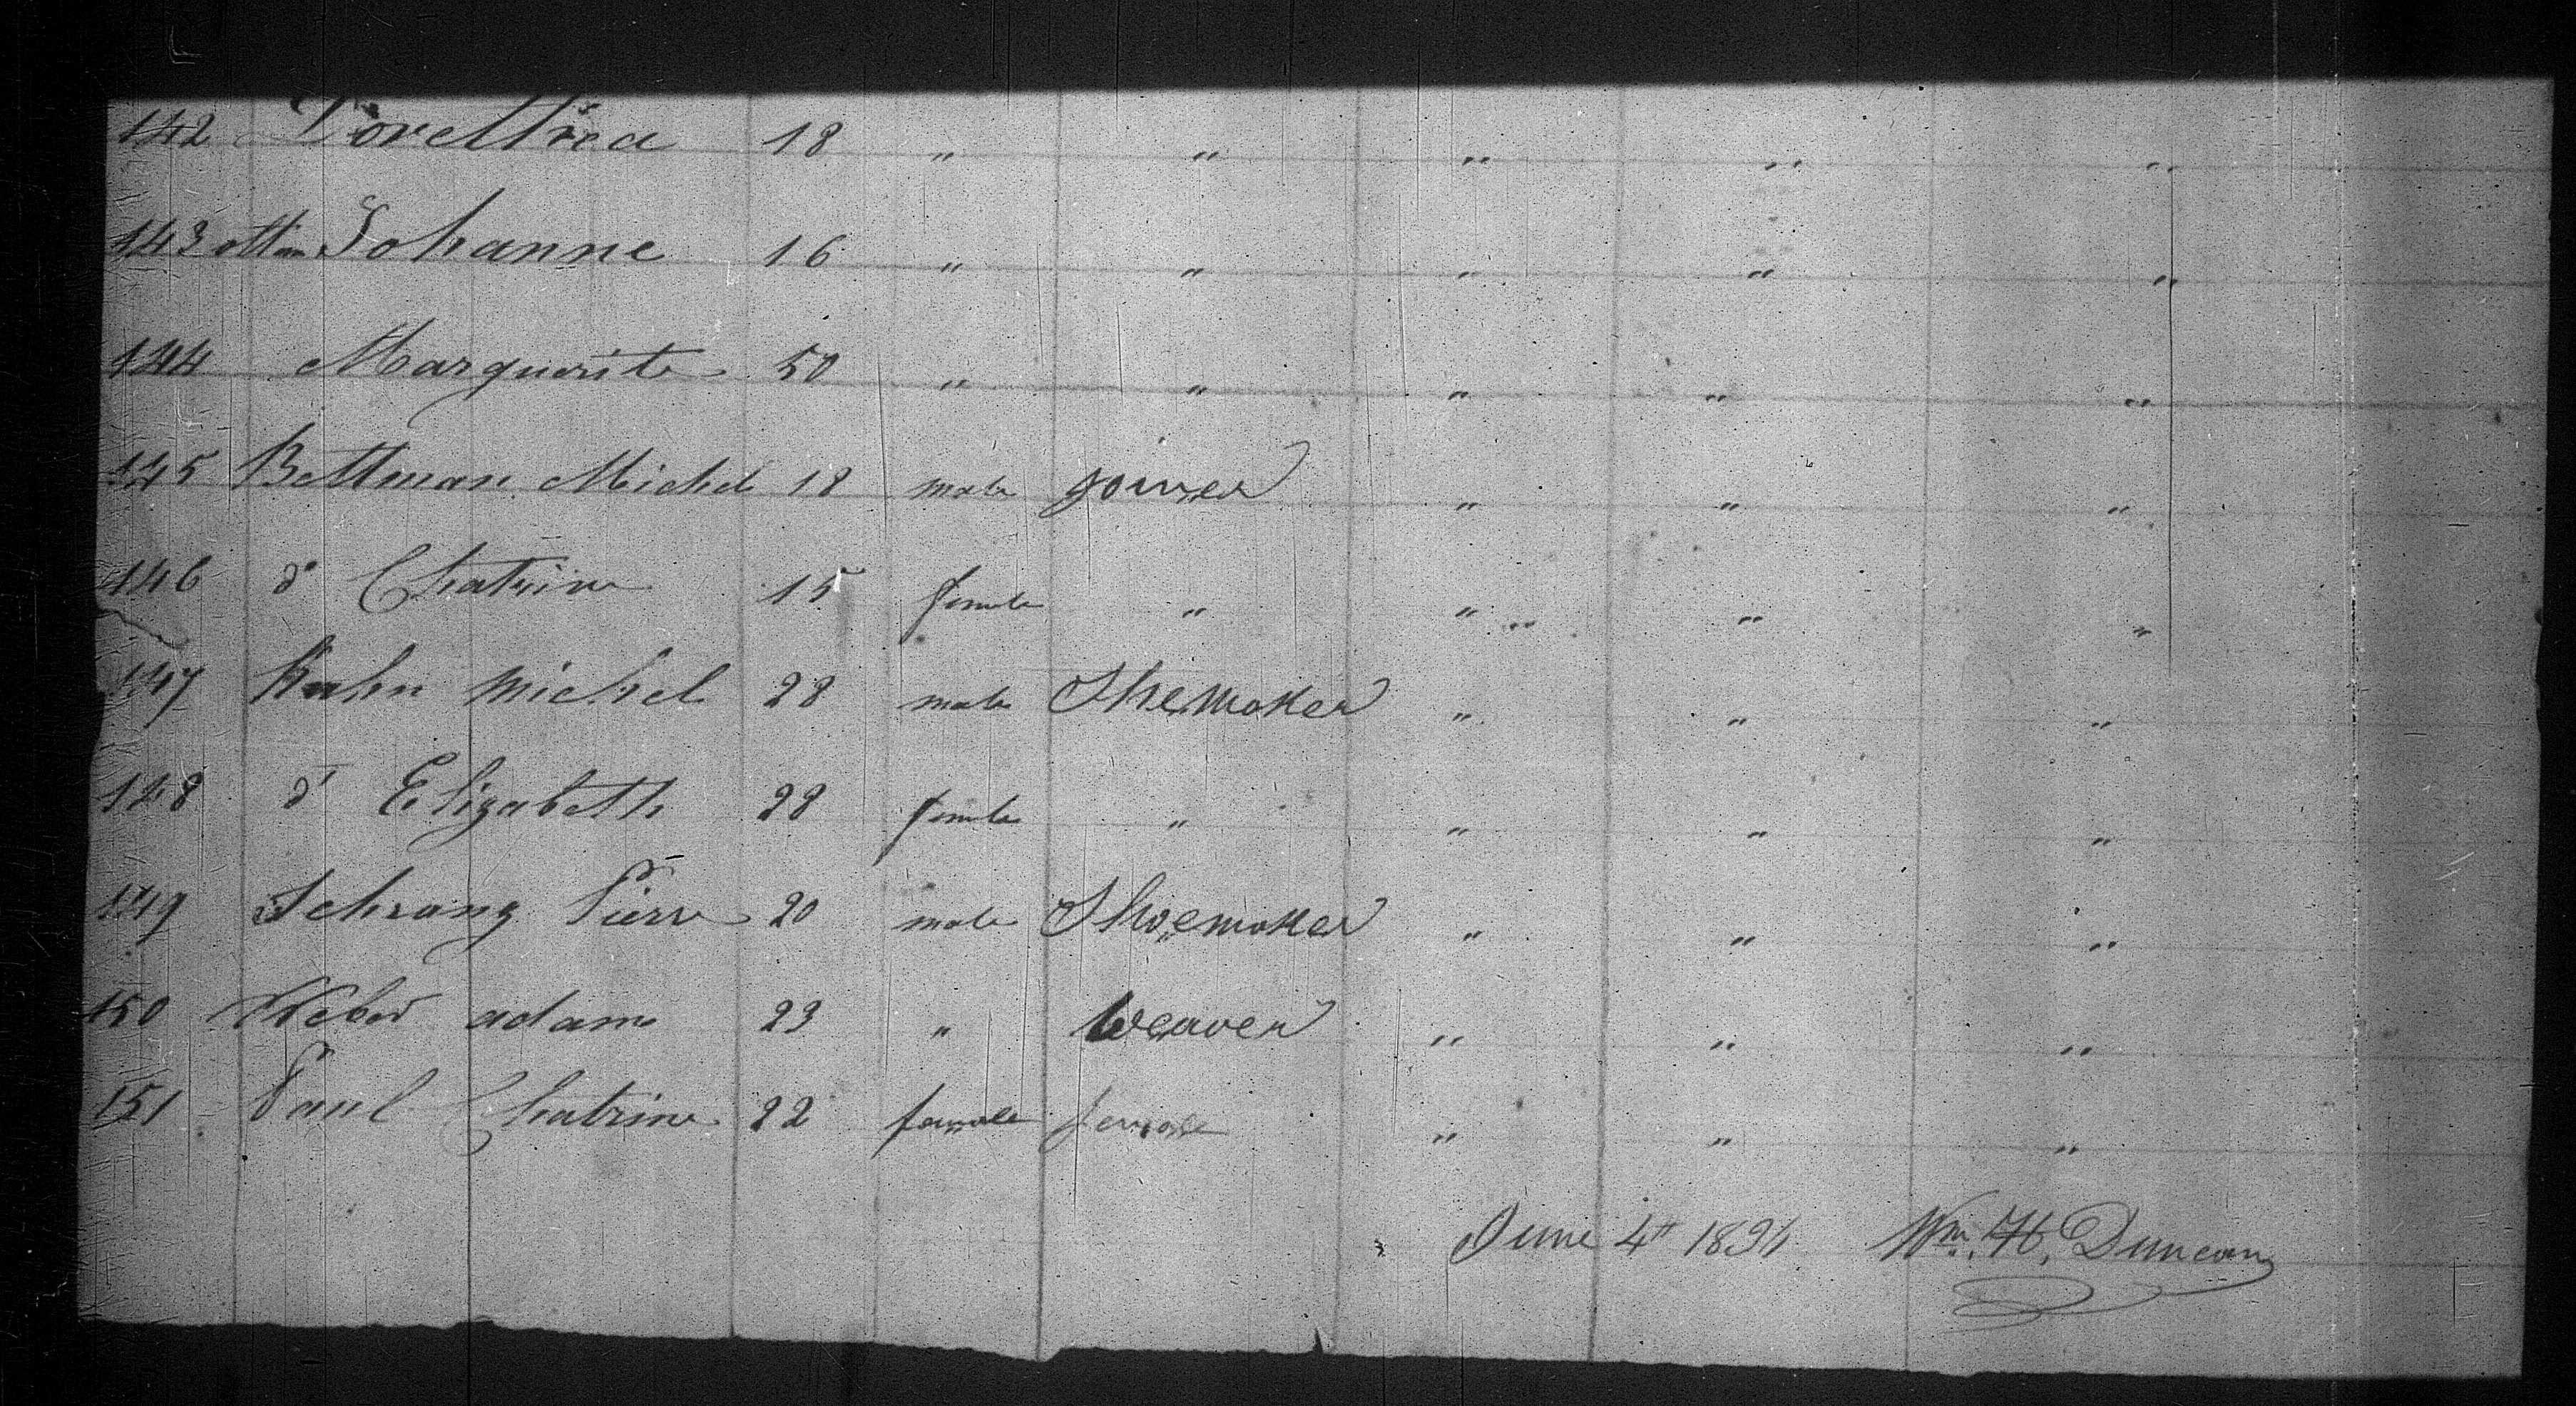 142 Dorethea 18 " " " " "
143 Johanne 16 " " " " "
144 Marguerite 50 " " " " "
145 Bettman Michel 18 male joiner " " "
146 do Chatrine 15 female " " " " "
147 Kuhn Michel 28 male Shemaker " " "
148 do Elizabeth 28 female " " " "
149 Schrang Pierre 20 male Shoemaker " " "
150 Weber adam 23 " weaver " " "
151 Paul Chatrine 22 female female " " "
June 4th Wm. H. Duncan